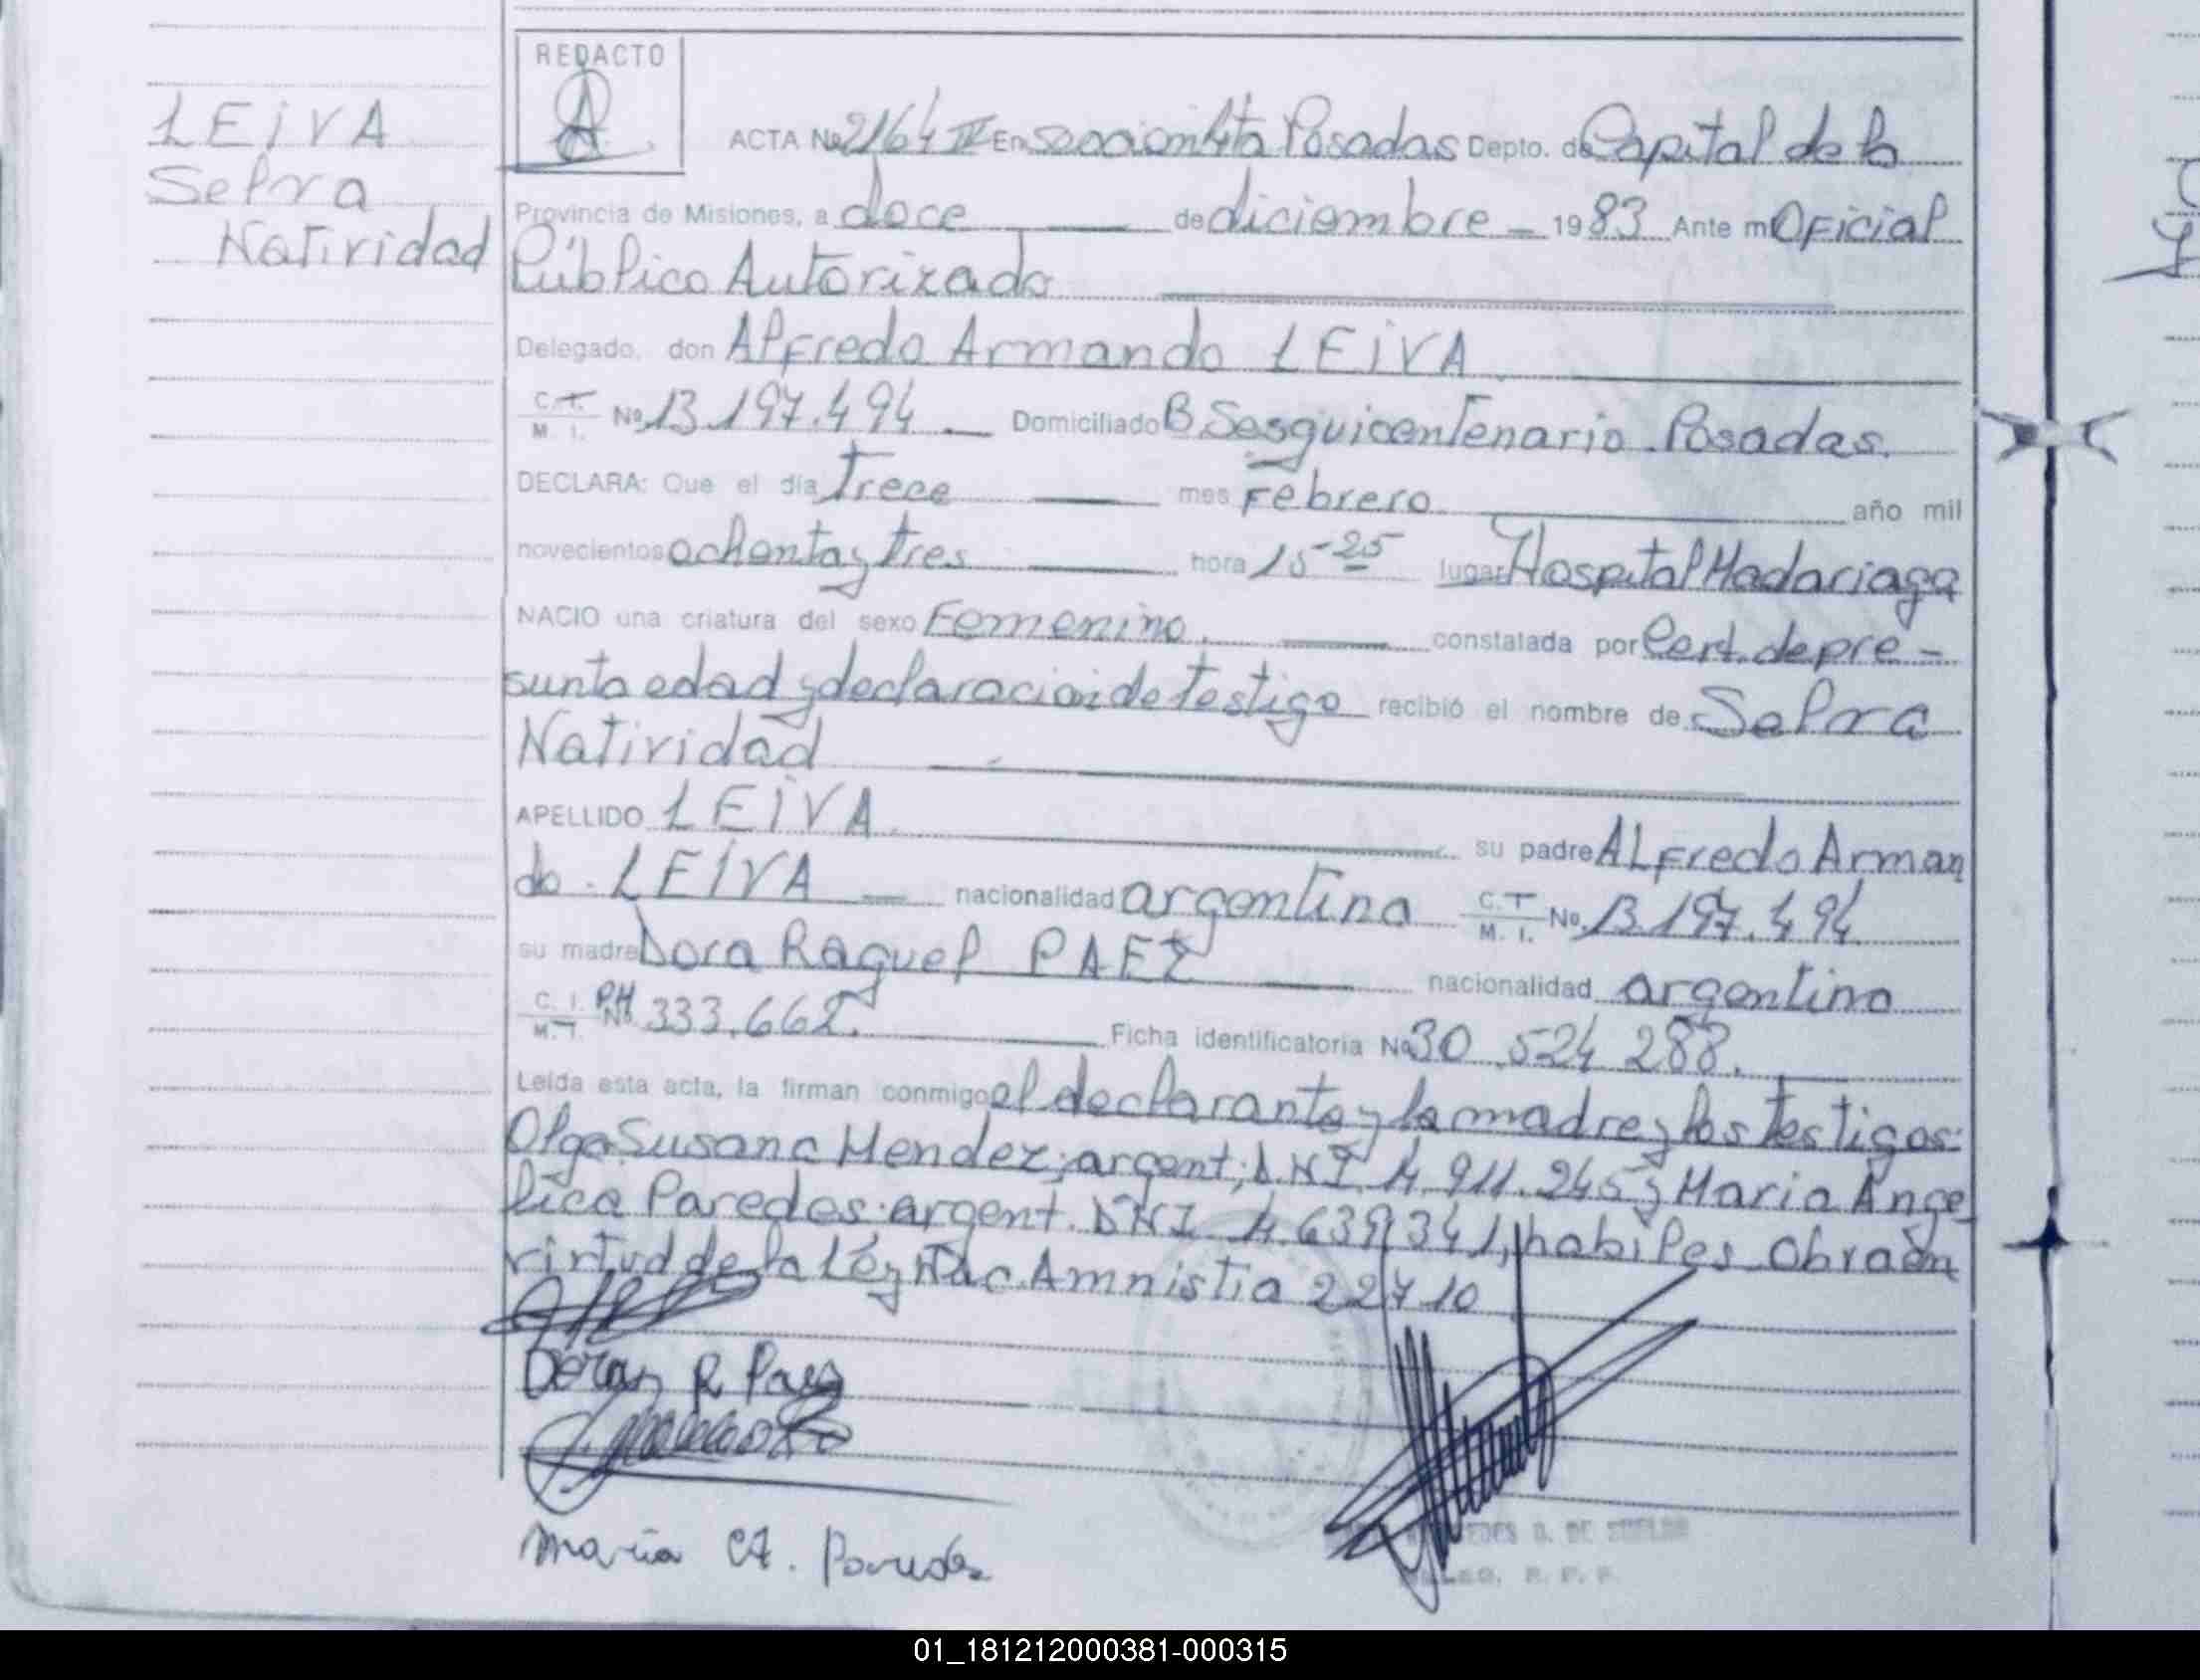 LEIVA
Selva
Natividad
REDACTO
ACTA No 2164 IV En seccion 4ta Posadas Depto. de Capital de la
Provincia de Misiones, a doce de diciembre 1983 Ante mi Oficial
Público Autorizado
Delegado, don Alfredo Armando LEIVA
C.I. M. I. No 13.197.494 Domiciliado B Sesquicentenario. Posadas.
DECLARA: Que el día trece mes Febrero año mil
novecientos ochenta y tres hora 15-25 lugar Hospital Madariaga
NACIO una criatura del sexo Femenino. constatada por Cert. de pre-
sunta edad y declaracion de testigo recibió el nombre de Selva
Natividad
APELLIDO LEIVA su padre ALfredo Arman
do. LEIVA nacionalidad argentina C.I. M. I. No. 13.197.494
su madre Dora Raquel PAEZ nacionalidad argentina
C. I. M. I. No 333.662. Ficha identificatoria No 30.524 288.
Leída esta acta, la firman conmigo el declarante y la madre y los testigos:
Olga Susana Mendez; argent; D.N.I. 4.911.245 y Maria Ange
lica Paredes. argent. DNI 4.639.341, habiles Obra en
virtud de la Ley Nac. Amnistia 22410
R Paez
Maria A. Paredes
01_181212000381-000315